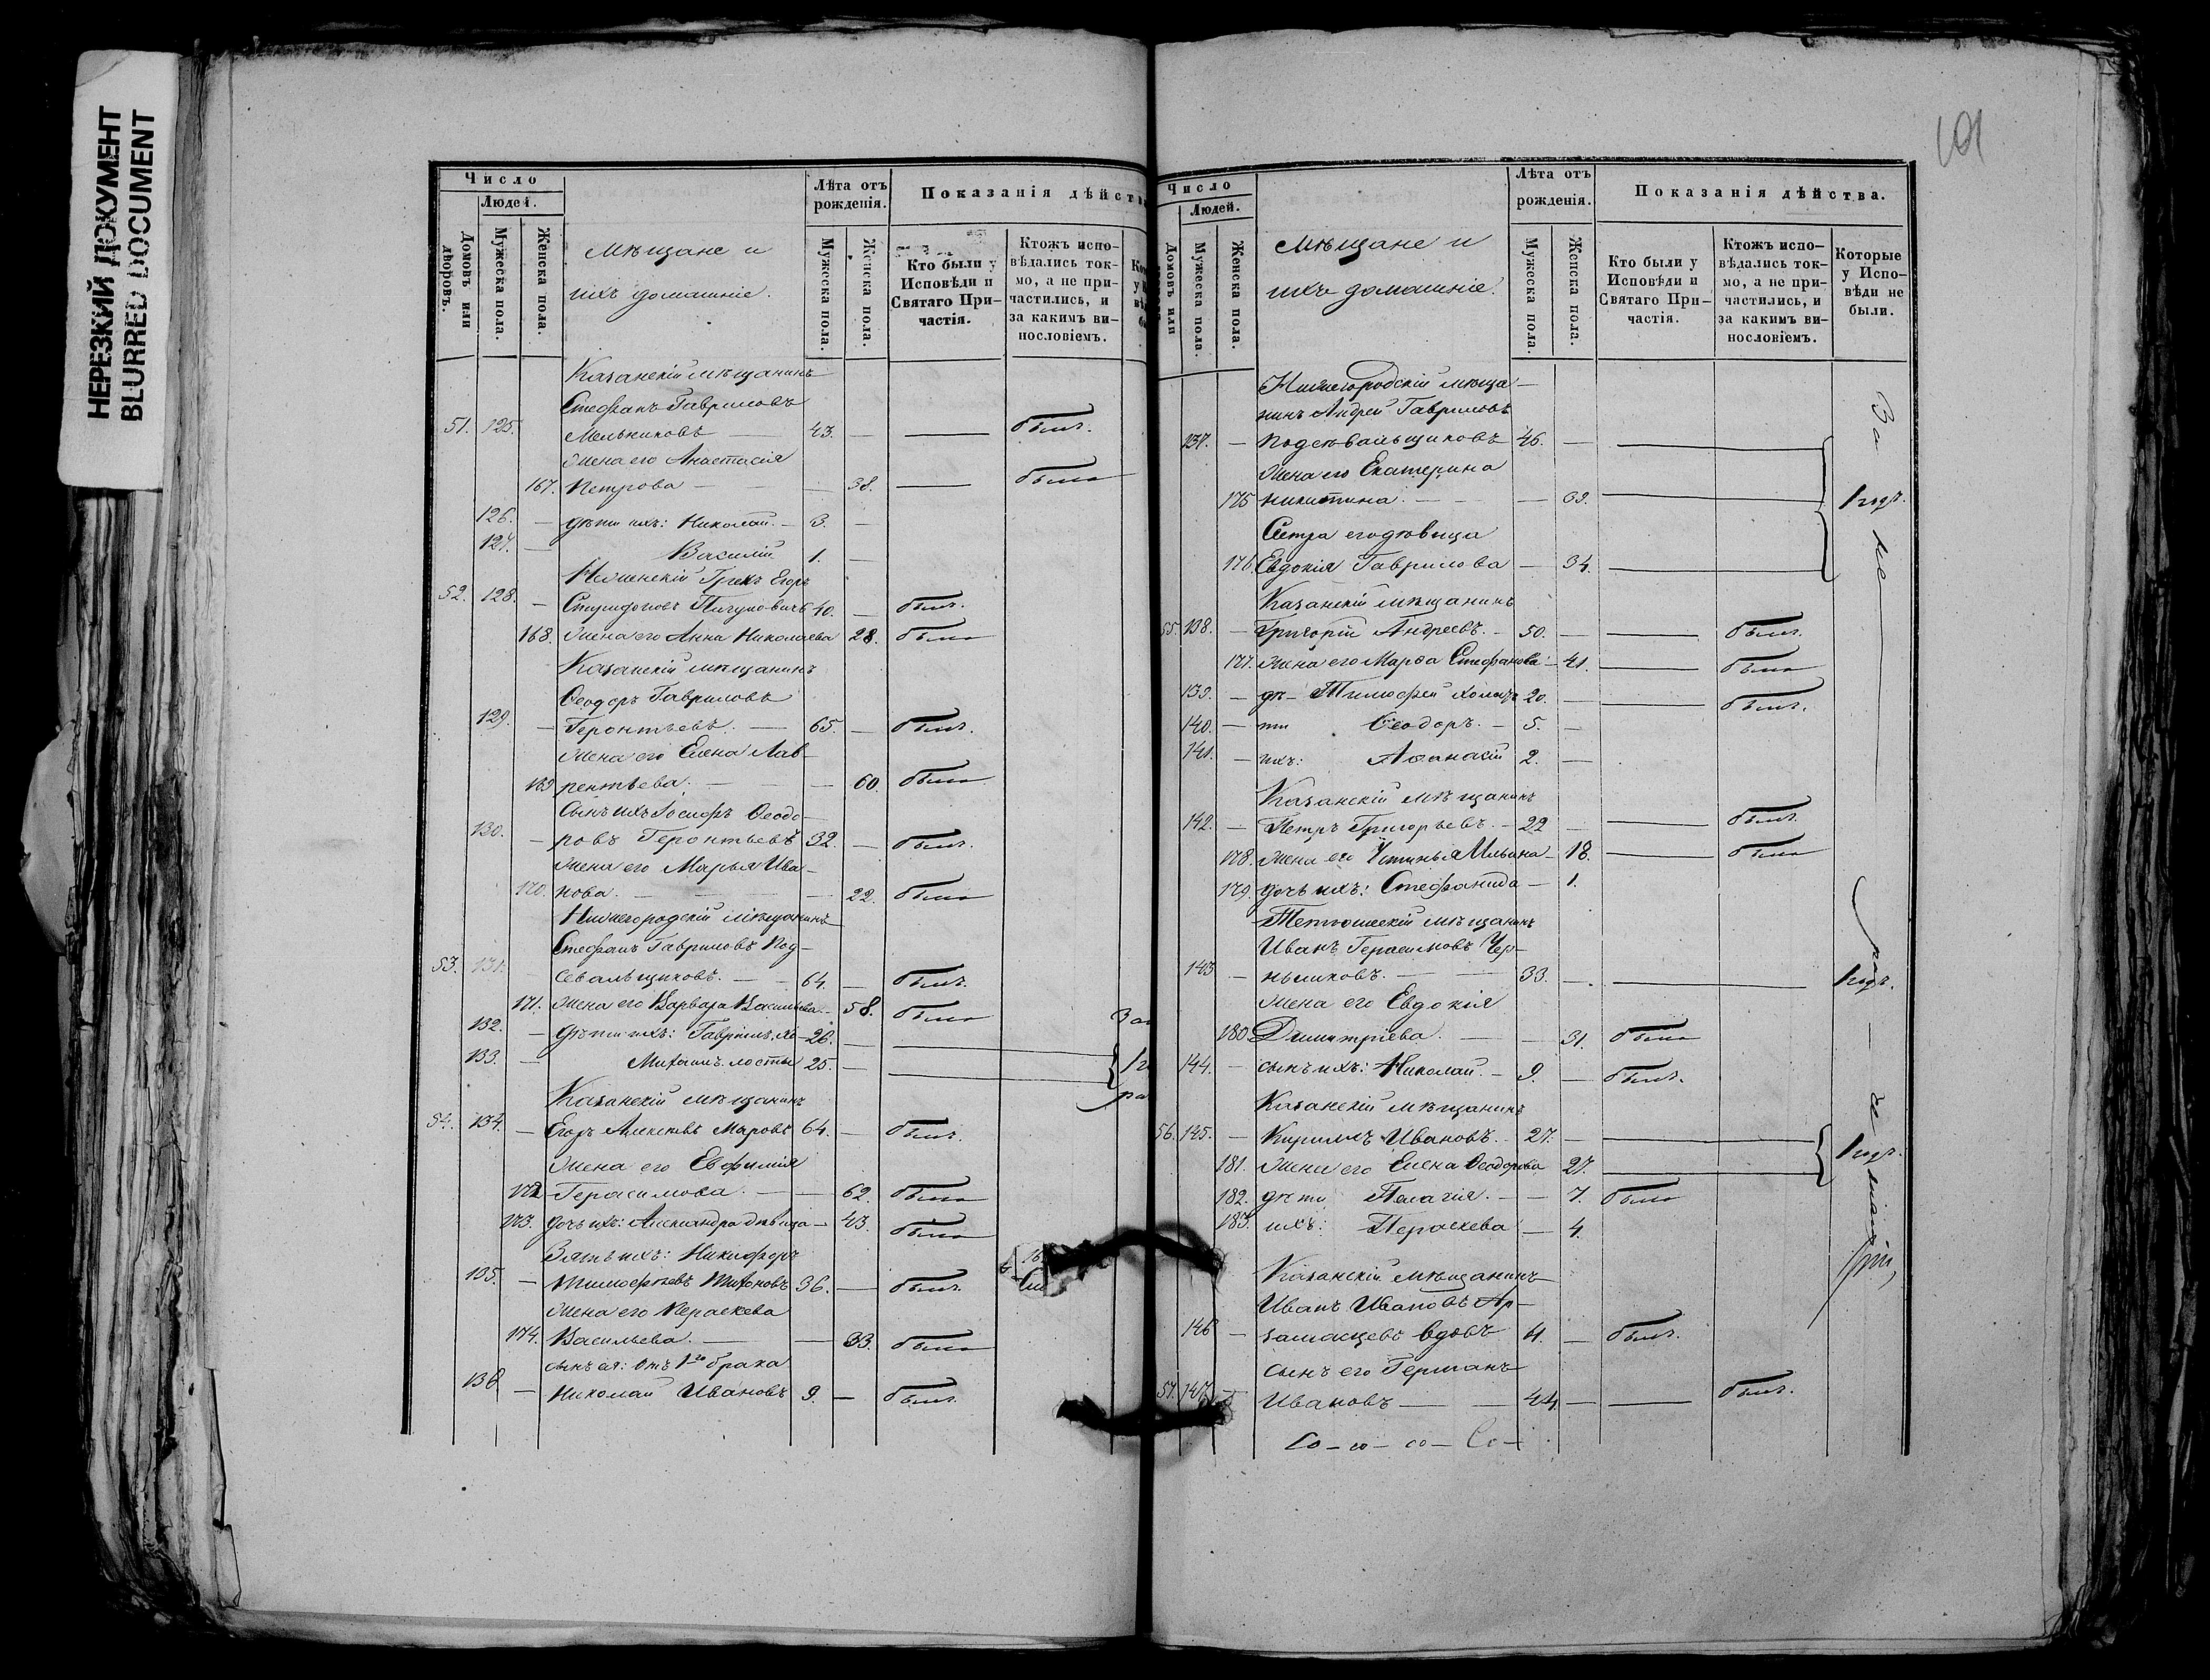 НЕРЕЗКИЙ ДОКУМЕНТ
BLURRED DOCUMENT
Число
Людей.
Домовъ или дворовъ.
Мужеска пола.
Женска пола.
Мѣщане и
ихъ домашніе.
Лѣта отъ рожденія.
Мужеска пола.
Женска пола.
Показанія дѣйства
Кто были у Исповѣди и Святаго Причастія.
Ктожъ испо-
вѣдались ток-
мо, а не при-
частились, и
за какимъ ви-
нословіемъ.
Казанскій мѣщанинъ
Стефанъ Гавриловъ
51. 125. Мельниковъ — 43. — — былъ.
Жена его Анастасія
167. Петрова — — 38. — была
126. — дѣти ихъ: Николай. — 3. —
127. — Василій 1. —
Нѣжинскій Грекъ Егоръ
52. 128. — 40. — былъ.
168. Жена его Анна Николаева 28. была
Казанскій мѣщанинъ
Ѳеодоръ Гавриловъ
129. — Геронтьевъ. — 65. — былъ.
Жена его Елена Лав-
169 рентьева. — — 60. была
Сынъ ихъ Іосифъ Ѳеодо-
130. — ровъ Геронтьевъ 32. — былъ.
Жена его Марья Ива-
170. нова. — — 22. была
Нижегородскій мѣщанинъ
Стефанъ Гавриловъ Под-
53. 131. — севальщиковъ. — 64. — былъ.
171. Жена его Варвара Васильева — 58. была
132. — Дѣти ихъ: Гавріилъ, хо- 26. —
133. — Михаилъ. лосты 25. —
Казанскій мѣщанинъ
54. 134. — Егоръ Алексѣевъ Маровъ 64. — былъ.
Жена его Евфимія
172 Герасимова. — — 62. была
173. дочь ихъ: Александра дѣвица — 43. была
Зять ихъ: Никифоръ
135. — Тимофѣевъ Тихоновъ 36. — былъ.
Жена его Параскева
174. Васильева. — — 33. была
сынъ ея: Отъ 1го брака
136 — Николай Ивановъ 9. — былъ.
101
Число
Людей.
Домовъ или
Мужеска пола.
Женска пола.
Мѣщане и
ихъ домашніе.
Лѣта отъ рожденія.
Мужеска пола.
Женска пола.
Показанія дѣйства.
Кто были у Исповѣди и Святаго Причастія.
Ктожъ испо-
вѣдались ток-
мо, а не при-
частились, и
за какимъ ви-
нословіемъ.
Которые у Испо-
вѣди не были.
Нижегородскій мѣща-
нинъ Андрей Гавриловъ
137. — Подсѣвальщиковъ 46. —
Жена его Екатерина
175 Никитина. — — 39.
Сестра его дѣвица
176 Евдокія Гаврилова — 34.
Казанскій мѣщанинъ
55. 138. — Григорій Андреевъ. — 50. — — былъ.
177. Жена его Марѳа Стефанова — 41. — была
139. — дѣ- Тимофей холостъ 20. — — былъ.
140. — ти Ѳеодоръ. — 5. —
141. — ихъ: Аѳанасій 2. —
Казанскій мѣщанинъ
142. — Петръ Григорьевъ. — 22 — — былъ.
178. Жена его Устинья Ильина — 18. — была
179. дочь ихъ: Стефанида — 1.
Тетюшскій мѣщанинъ
Иванъ Герасимовъ Чер-
143 — нышковъ. — 33. —
Жена его Евдокія
180 Димитріева. — — 31. была
144. — сынъ ихъ: Николай. — 9. — былъ.
Казанскій мѣщанинъ
56. 145. — Кириллъ Ивановъ. — 27. —
181. Жена его Елена Ѳеодорова 27.
182. дѣти Пелагія. — — 7. была
183. ихъ: Параскева — 4.
Казанскій мѣщанинъ
Иванъ Ивановъ Ар-
146 — замасцевъ вдовъ — былъ.
Сынъ его Германъ
57. 147. — Ивановъ — 44. — — былъ.